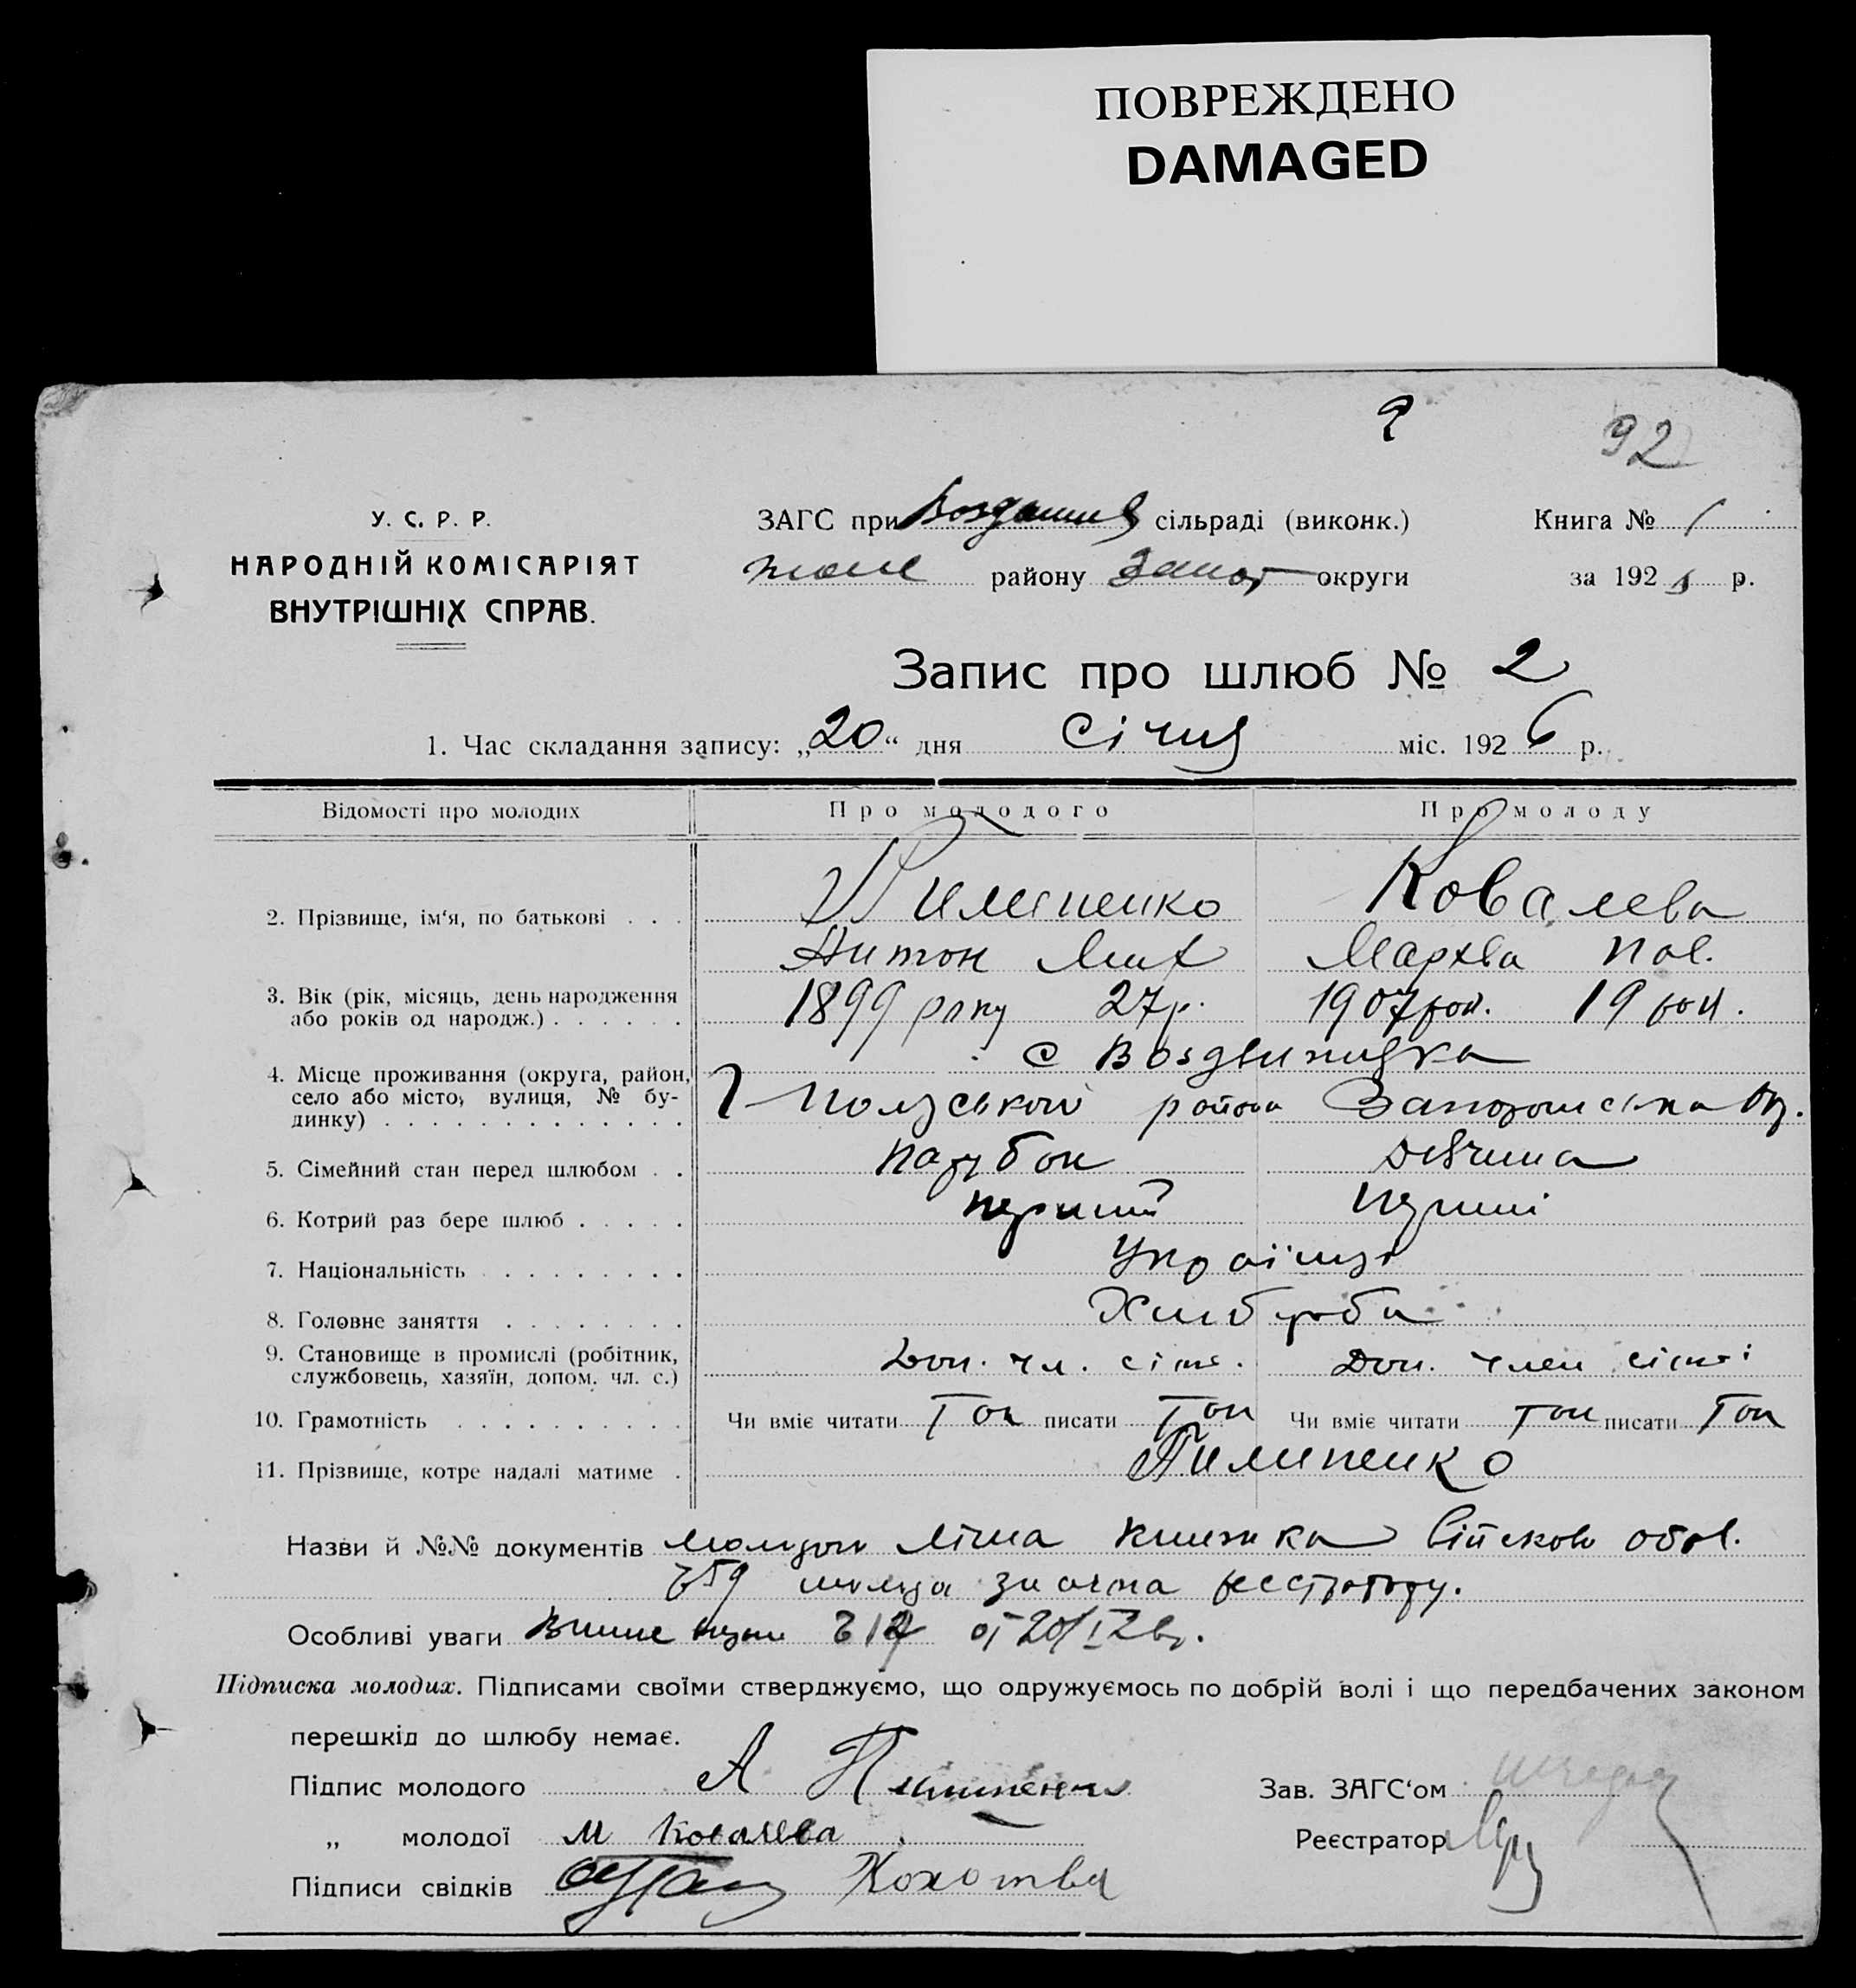 ПОВРЕЖДЕНО
DAMAGED
92
У. С. Р. Р.
НАРОДНІЙ КОМІСАРІЯТ
ВНУТРІШНІХ СПРАВ.
ЗАГС при сільраді (виконк.)
району Запор округи
Книга № 1
за 192 р.
Запис про шлюб № 2
1. Час складання запису: „20“ дня Січня міс. 1926 р.
Відомості про молодих Про молодого Про молоду
2. Прізвище, ім'я, по батькові . . . Пилипенко Ковалева
Антон Мих Мархва Пав.
3. Вік (рік, місяць, день народження
або років од народж.) . . . . . . 1899 року 27р. 1907 рок. 19 рок.
с Воздвинівка
4. Місце проживання (округа, район,
село або місто, вулиця, № бу-
динку) . . . . . . . . . . . . . району Запорожська окр.
5. Сімейний стан перед шлюбом . . парубок дівчина
6. Котрий раз бере шлюб . . . . . перший перший
7. Національність . . . . . . . . Українці
8. Головне заняття . . . . . . . . Хліброби
9. Становище в промислі (робітник,
службовець, хазяїн, допом. чл. с.) Доп. чл. сімї. Доп. член сімї
10. Грамотність . . . . . . . . . Чи вміє читати Так писати Так Чи вміє читати Так писати Так
11. Прізвище, котре надалі матиме . Пилипенко
Назви й №№ документів молодого літна книжка військов обов.
759 молода значна реєстратору.
Особливі уваги
Підписка молодих. Підписами своїми стверджуємо, що одружуємось по добрій волі і що передбачених законом
перешкід до шлюбу немає.
Підпис молодого А Пилипенко
„ молодої М Ковалева
Підписи свідків
Зав. ЗАГС'ом
Реєстратор